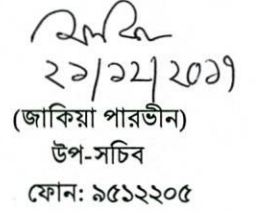 ২১/১২/২০১৭
(জাকিয়া পারভীন)
উপ-সচিব
ফোন: ৯৫১২২০৫